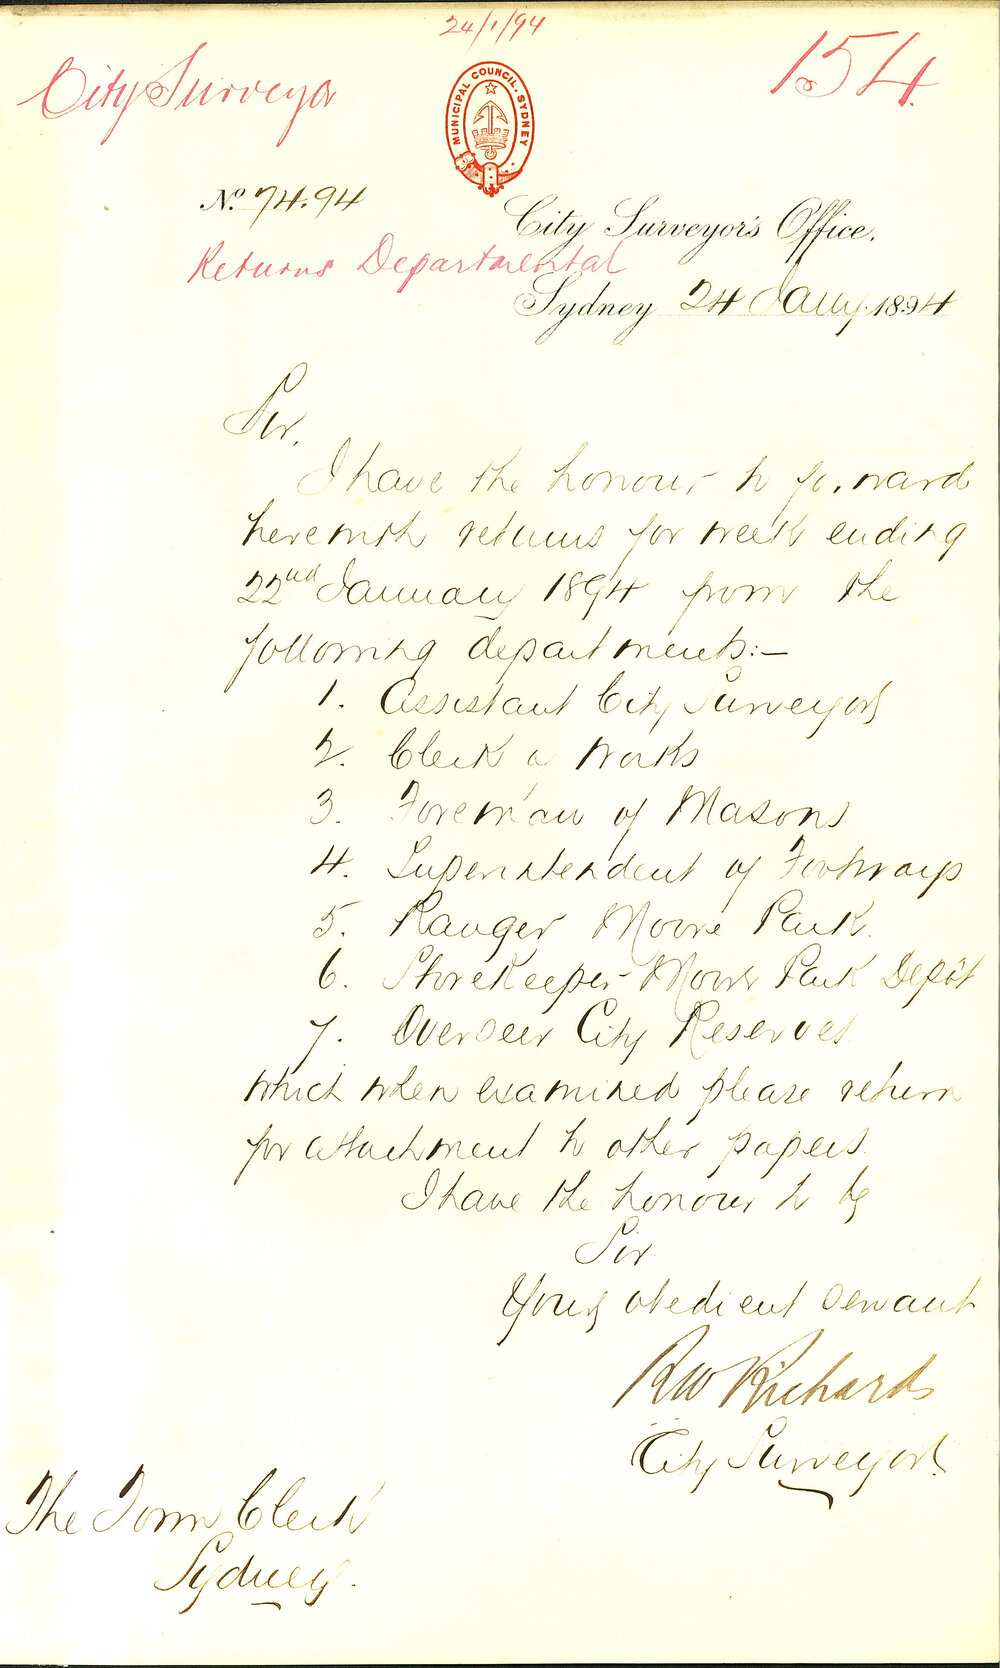 24/1/94
City Surveyor
154.
MUNICIPAL COUNCIL · SYDNEY
No. 74.94
City Surveyor's Office,
Returns Departmental
Sydney 24 Jany. 1894
Sir,
I have the honour to forward
herewith returns for week ending
22nd January 1894 from the
following departments:—
1. Assistant City Surveyor
2. Clerk of Works
3. Foreman of Masons
4. Superintendent of Footways
5. Ranger Moore Park.
6. Storekeeper Moore Park Depôt
7. Overseer City Reserves.
which when examined please return
for attachment to other papers.
I have the honour to be
Sir
Your obedient servant
RW Richards
City Surveyor.
The Town Clerk
Sydney.